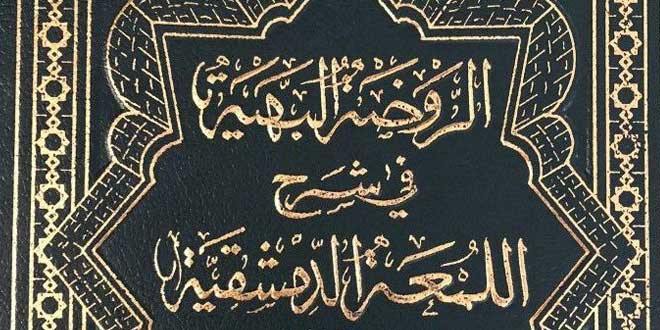 الرَّوضَةُ البَهِيَّةُ
في شَرحِ
اللُّمعَةِ الدِّمَشقِيَّةِ